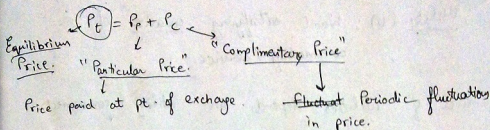 P_t = P_p + P_c
Equilibrium Price.
"Particular Price."
"Complimentary Price"
Price paid at pt. of exchange.
Fluctuat Periodic fluctuations
in price.